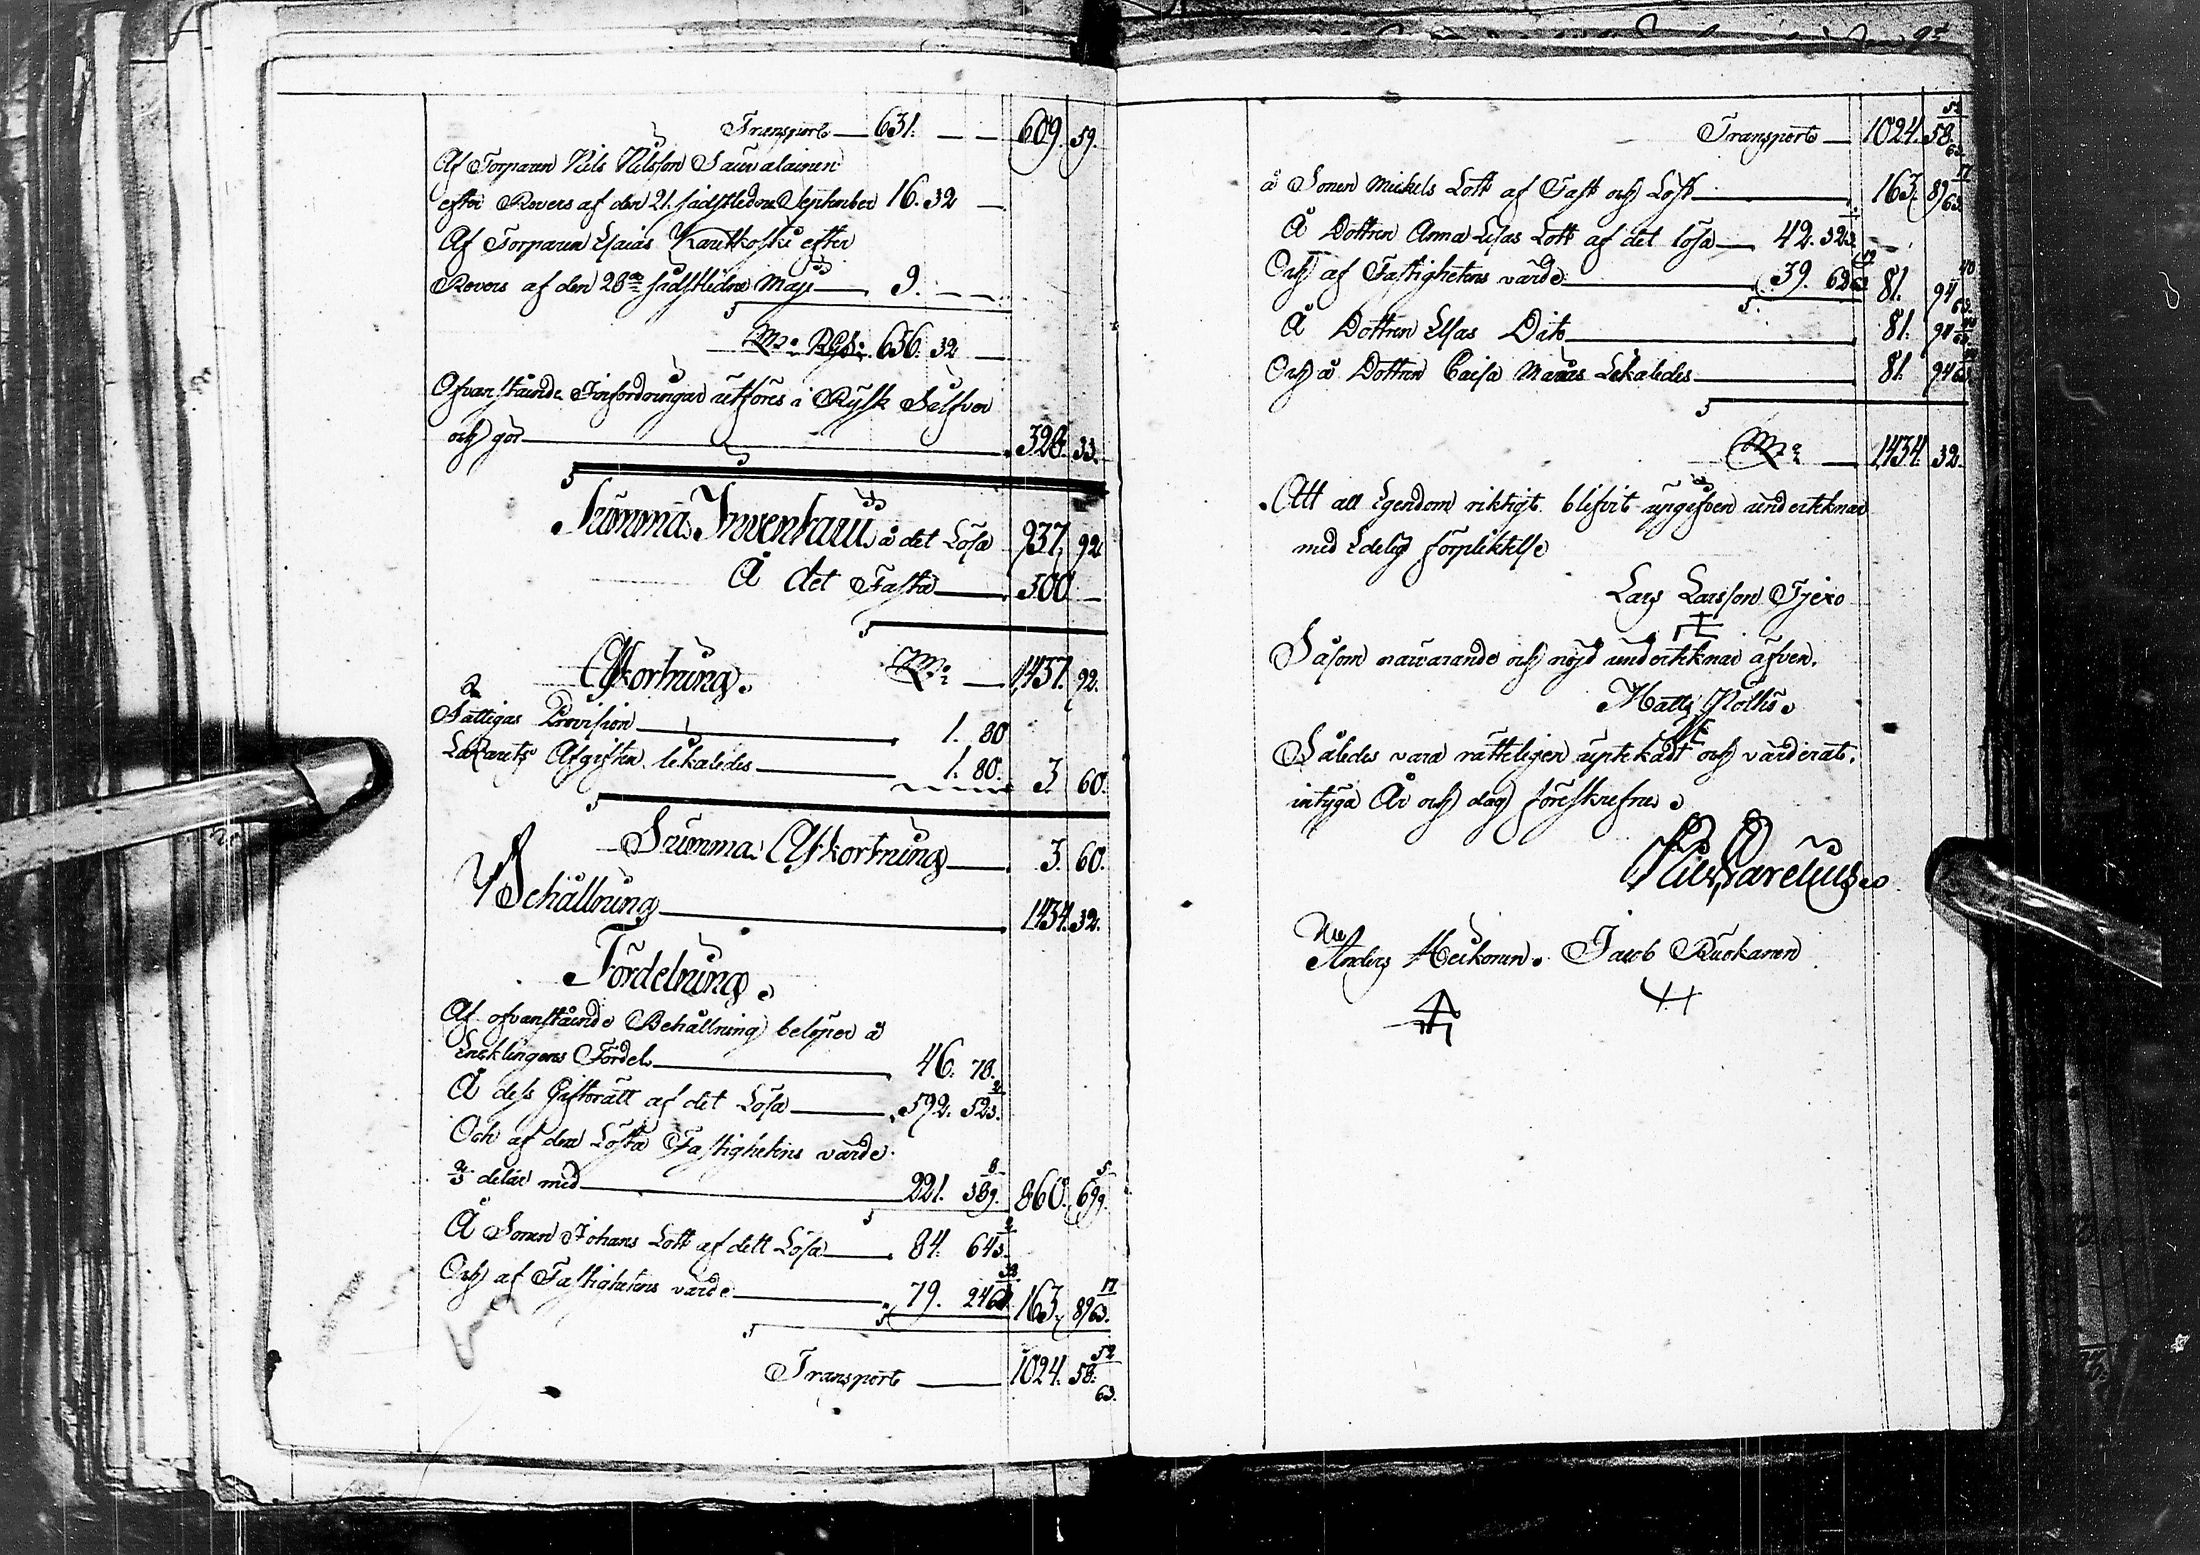 Transport 631. — — 609. 59.
Af Torparen Nils Nilsson Sauvalainen
efter Revers af den 21. sidstledne September 16. 32 —
Af Torparen Esaias Kautkoski efter
Revers af den 28de sidstledne Maji 9. — —
Ba: Rgs: 656. 32 —
Ofvanstående Infordringar utföres i Rysk Silfver
och gör 328. 33.
Summa Inventarii å det Lösa 937. 92
Å det Fasta 500 —
Afkortning. 1,437. 92.
Fattigas Provision 1. 80
Lazarets Afgiften likaledes 1. 80. 3. 60.
Summa Afkortning 3. 60.
Behållning 1434. 32.
Fördelning.
Af ofvanstående Behållning belöper å
Encklingens Fördel 46. 78.
Å dess Giftorätt af det Lösa 592. 52 2/3.
Och af den Lösta Fastighetens värde
2/3 delar med 221. 38 8/9. 860. 69 5/9.
Å Sonen Johans Lott af dett Lösa 84. 64 2/3
Och af Fastighetens värde 79. 24 38/63 163. 89 17/63.
Transport 1024. 58 52/63.
Transport 1024. 58 52/63
å Sonen Mickels Lott af Fast och Löst 163. 89 17/63.
Å Dottren Anna Lisas Lott af det lösa 42. 32 1/3.
Och af Fastighetens värde 39. 62 19/63 81. 94 40/63
Å Dottren Elsas Dito 81. 94 40/63
Och å Dottren Caisa Marias Likaledes 81. 94 40/63
1,434. 32.
Att all Egendom riktigt blifvit upgifven undertecknar
med Edelig förpliktelse
Lars Larsson Tjexo
Såsom närvarande och nöjd undertecknar äfven.
Matts Nolks.
Således vara rätteligen upteknadt och värderat,
intyga År och dag föreskrefne.
Anders Heikonen. Jacob Ruokanen